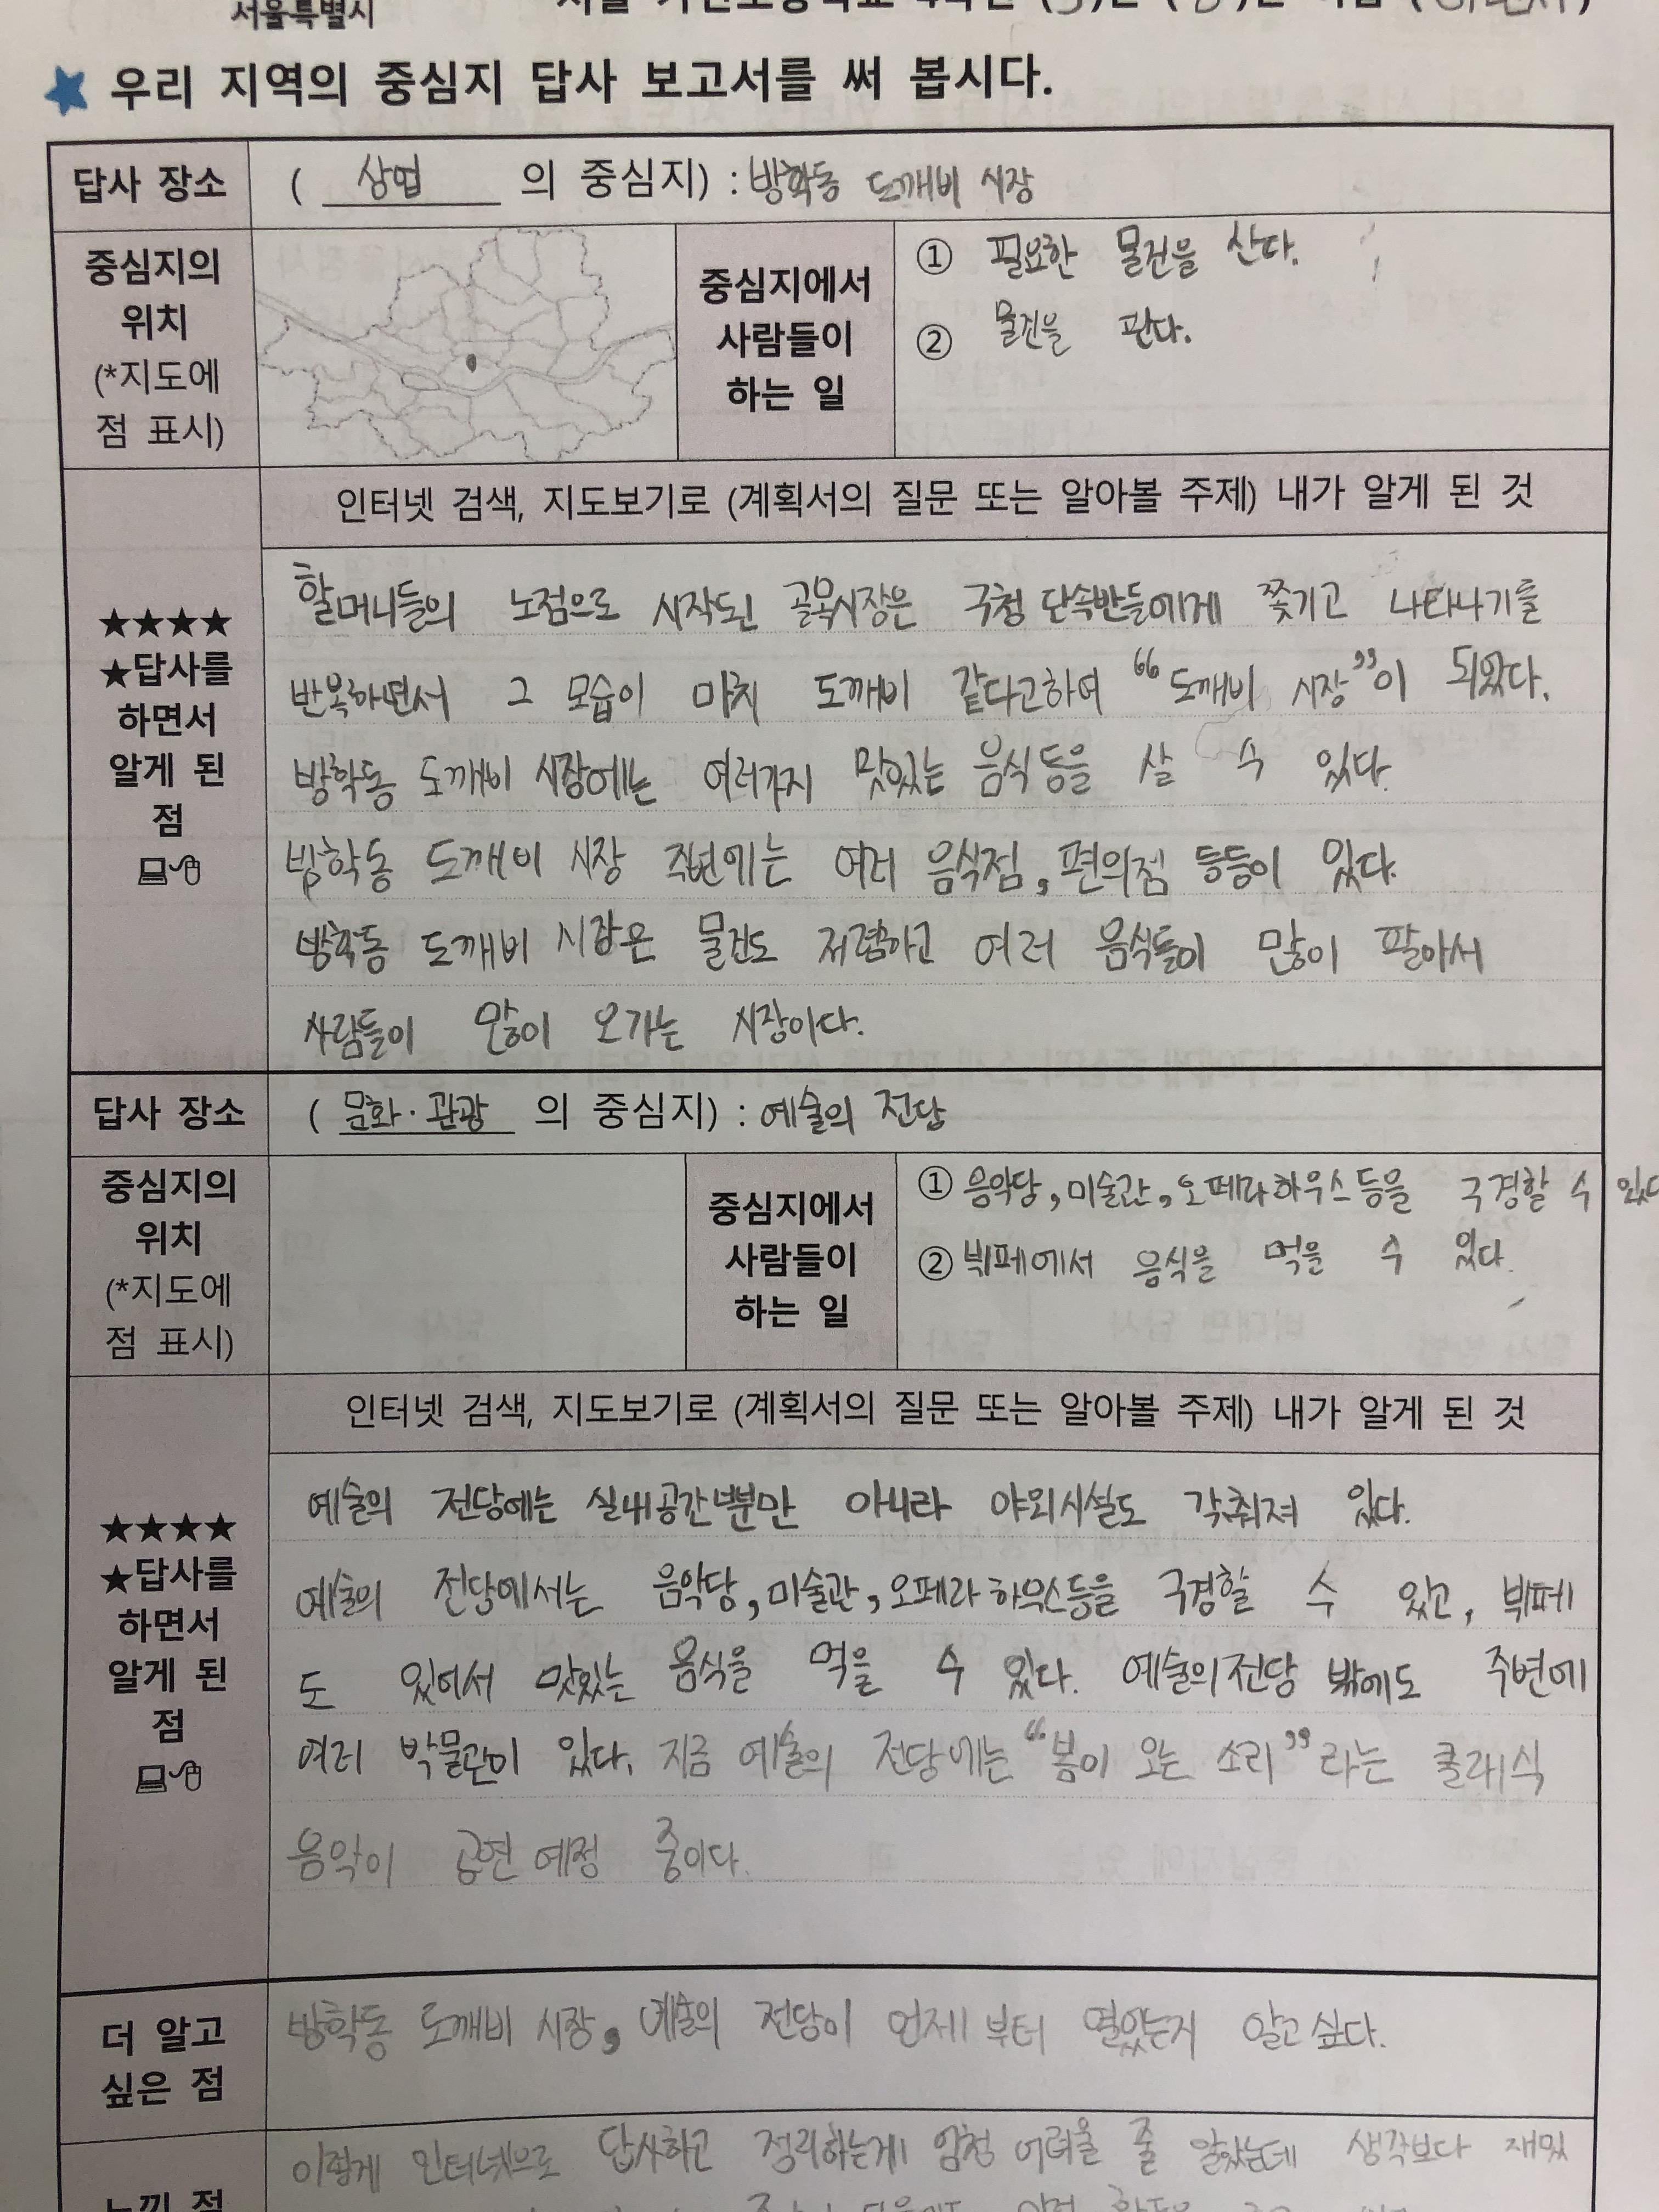 서울특별시
우리 지역의 중심지 답사 보고서를 써 봅시다.
답사 장소
( 상업 의 중심지) : 방학동 도깨비 시장
중심지의
위치
(*지도에
점 표시)
중심지에서
사람들이
하는 일
① 필요한 물건을 산다.
② 물건을 판다.
인터넷 검색, 지도보기로 (계획서의 질문 또는 알아볼 주제) 내가 알게 된 것
★★★★
★답사를
하면서
알게 된
점
할머니들의 노점으로 시작된 골목시장은 구청 단속반들에게 쫓기고 나타나기를
반복하면서 그 모습이 마치 도깨비 같다고하여 “도깨비 시장”이 되었다.
방학동 도깨비 시장에는 여러가지 맛있는 음식 등을 살 수 있다.
방학동 도깨비 시장 주변에는 여러 음식점, 편의점 등등이 있다.
방학동 도깨비 시장은 물건도 저렴하고 여러 음식들이 많이 팔아서
사람들이 많이 오가는 시장이다.
답사 장소
( 문화·관광 의 중심지) : 예술의 전당
중심지의
위치
(*지도에
점 표시)
중심지에서
사람들이
하는 일
① 음악당, 미술관, 오페라하우스 등을 구경할 수 있다
② 뷔페에서 음식을 먹을 수 있다.
인터넷 검색, 지도보기로 (계획서의 질문 또는 알아볼 주제) 내가 알게 된 것
★★★★
★답사를
하면서
알게 된
점
예술의 전당에는 실내공간뿐만 아니라 야외시설도 갖춰져 있다.
예술의 전당에서는 음악당, 미술관, 오페라 하우스등을 구경할 수 있고, 뷔페
도 있어서 맛있는 음식을 먹을 수 있다. 예술의전당 밖에도 주변에
여러 박물관이 있다. 지금 예술의 전당에는 “봄이 오는 소리”라는 클래식
음악이 공연 예정 중이다.
더 알고
싶은 점
방학동 도깨비 시장, 예술의 전당이 언제부터 열었는지 알고 싶다.
이렇게 인터넷으로 답사하고 정리하는게 엄청 어려울 줄 알았는데 생각보다 재밌
느낀 점